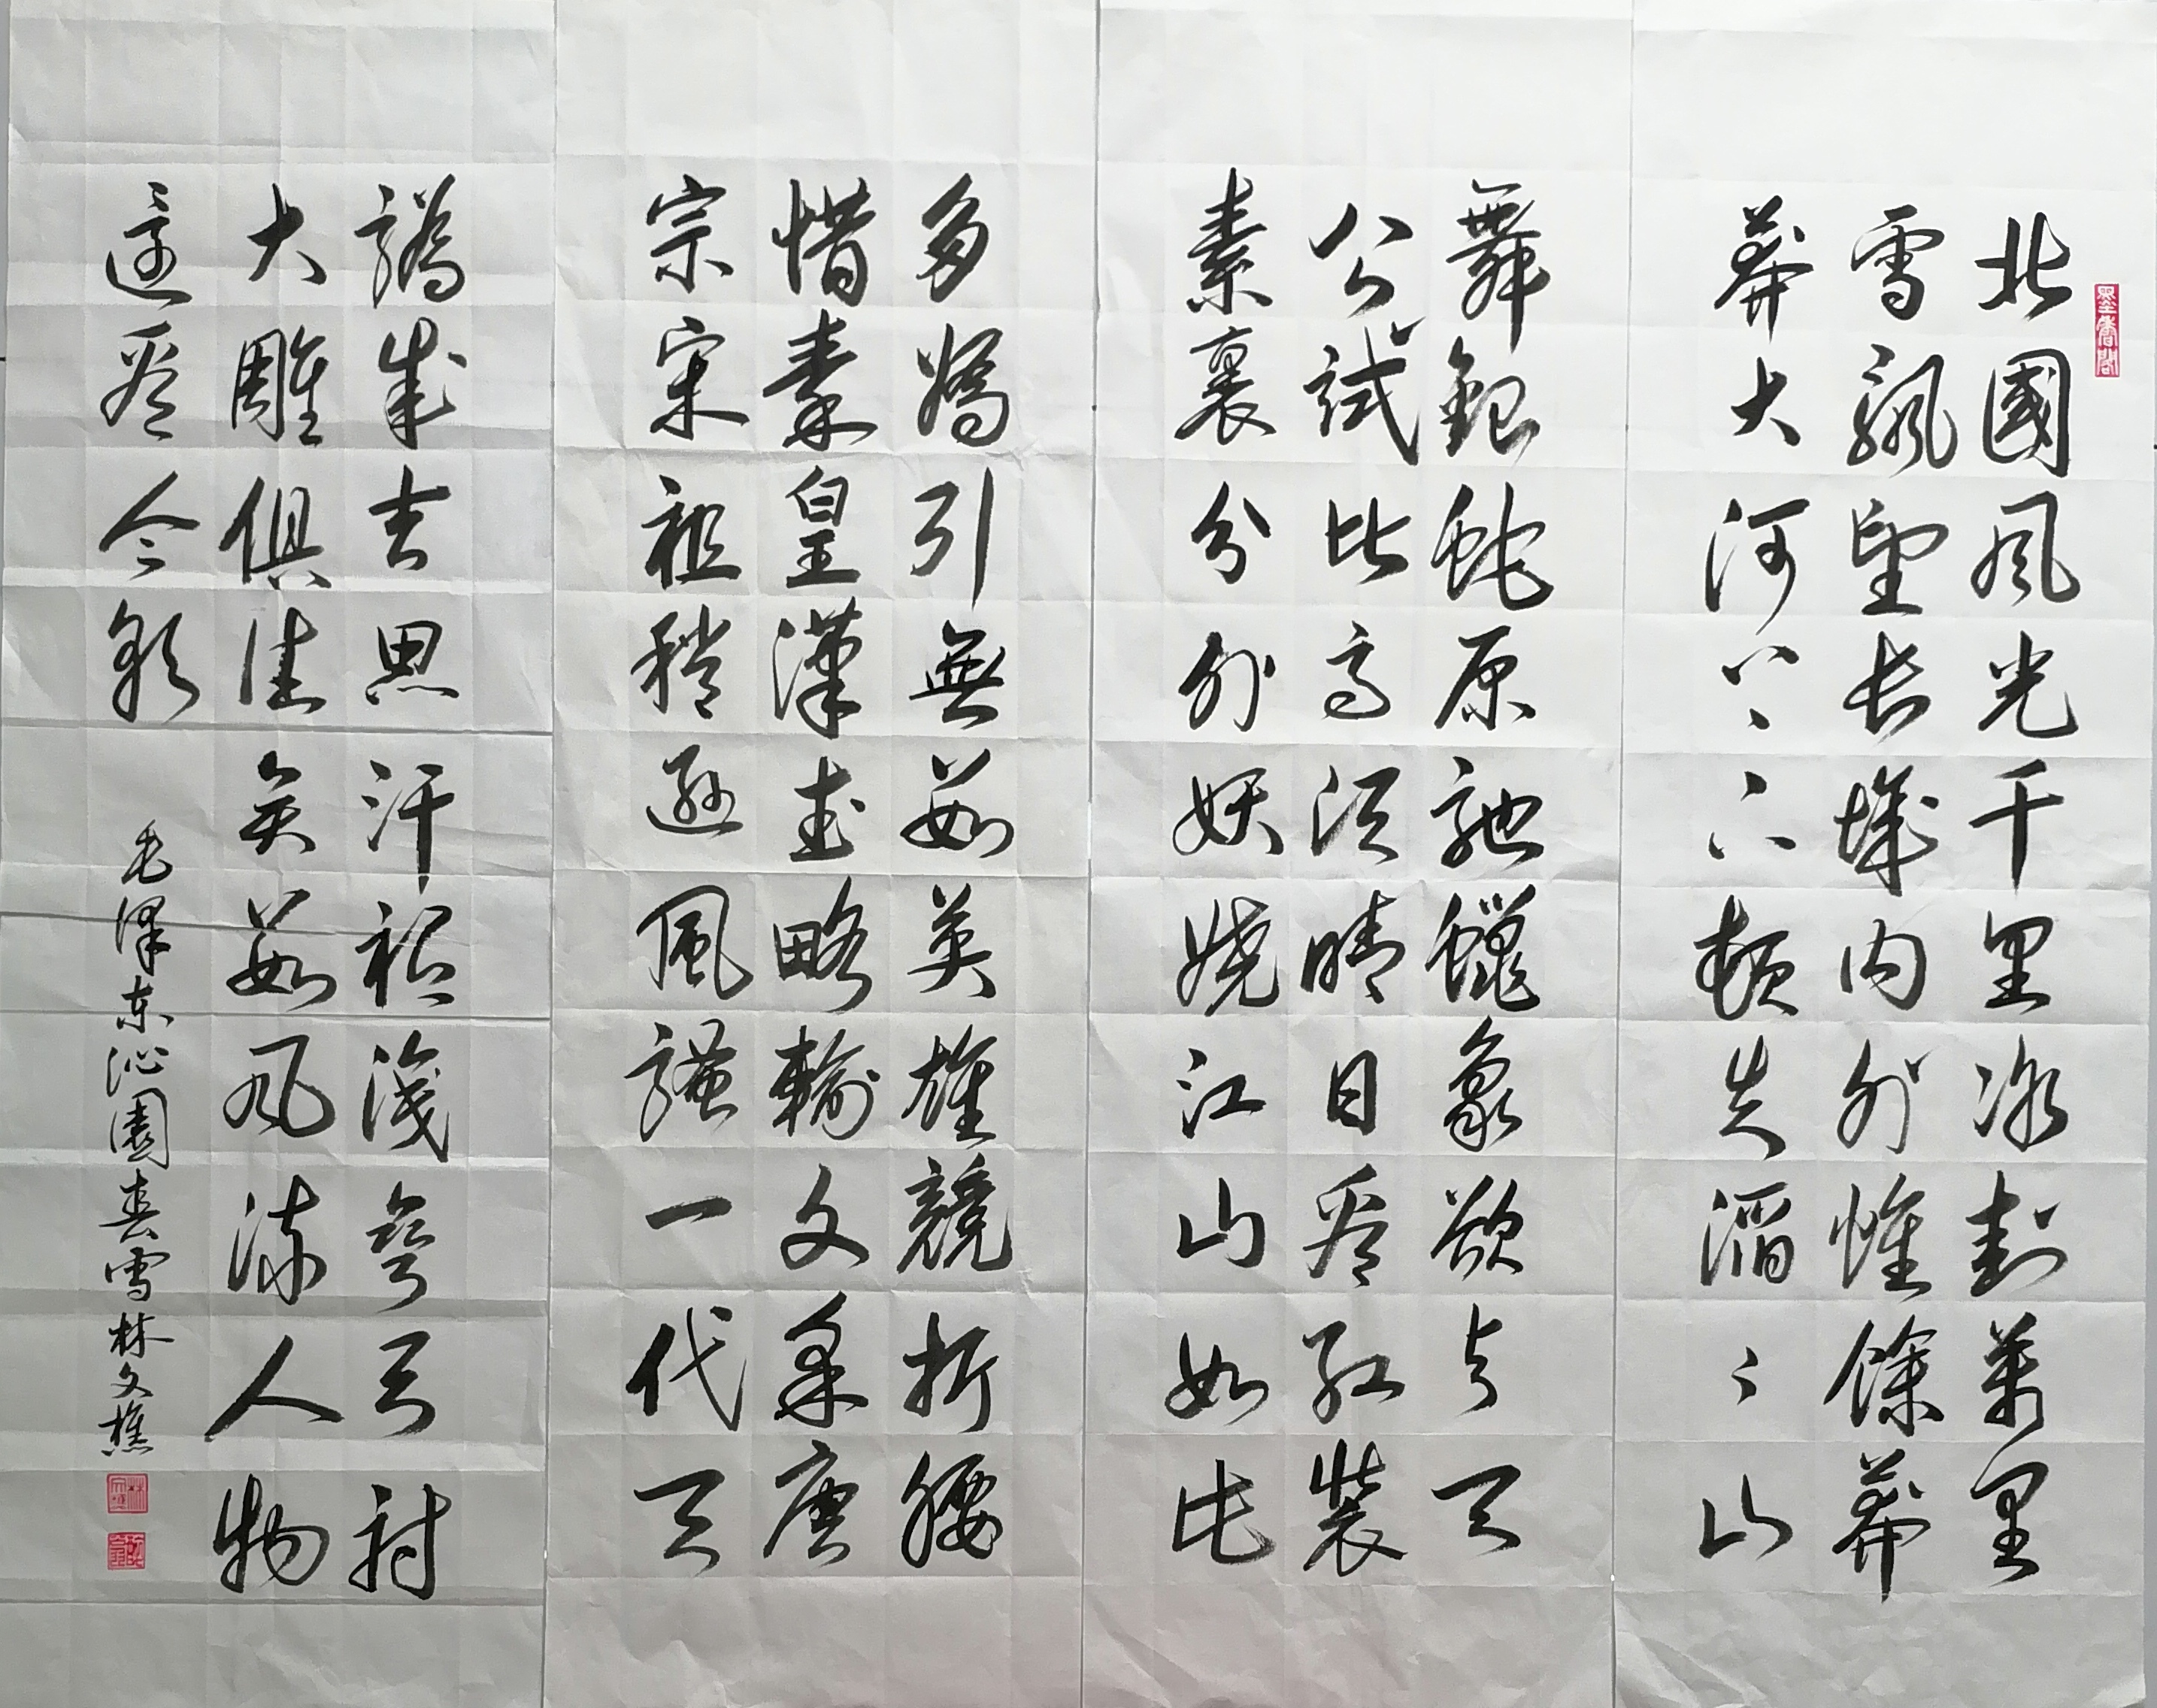 墨香閣
北國風光千里冰封萬里
雪飄望長城內外惟餘莽
莽大河上下頓失滔〻山
舞銀蛇原馳蠟象欲與天
公試比高須晴日看紅裝
素裹分外妖嬈江山如此
多嬌引無數英雄競折腰
惜秦皇漢武略輸文采唐
宗宋祖稍遜風騷一代天
驕成吉思汗祗識彎弓射
大雕俱往矣數風流人物
還看今朝
毛澤東沁園春雪林文樵